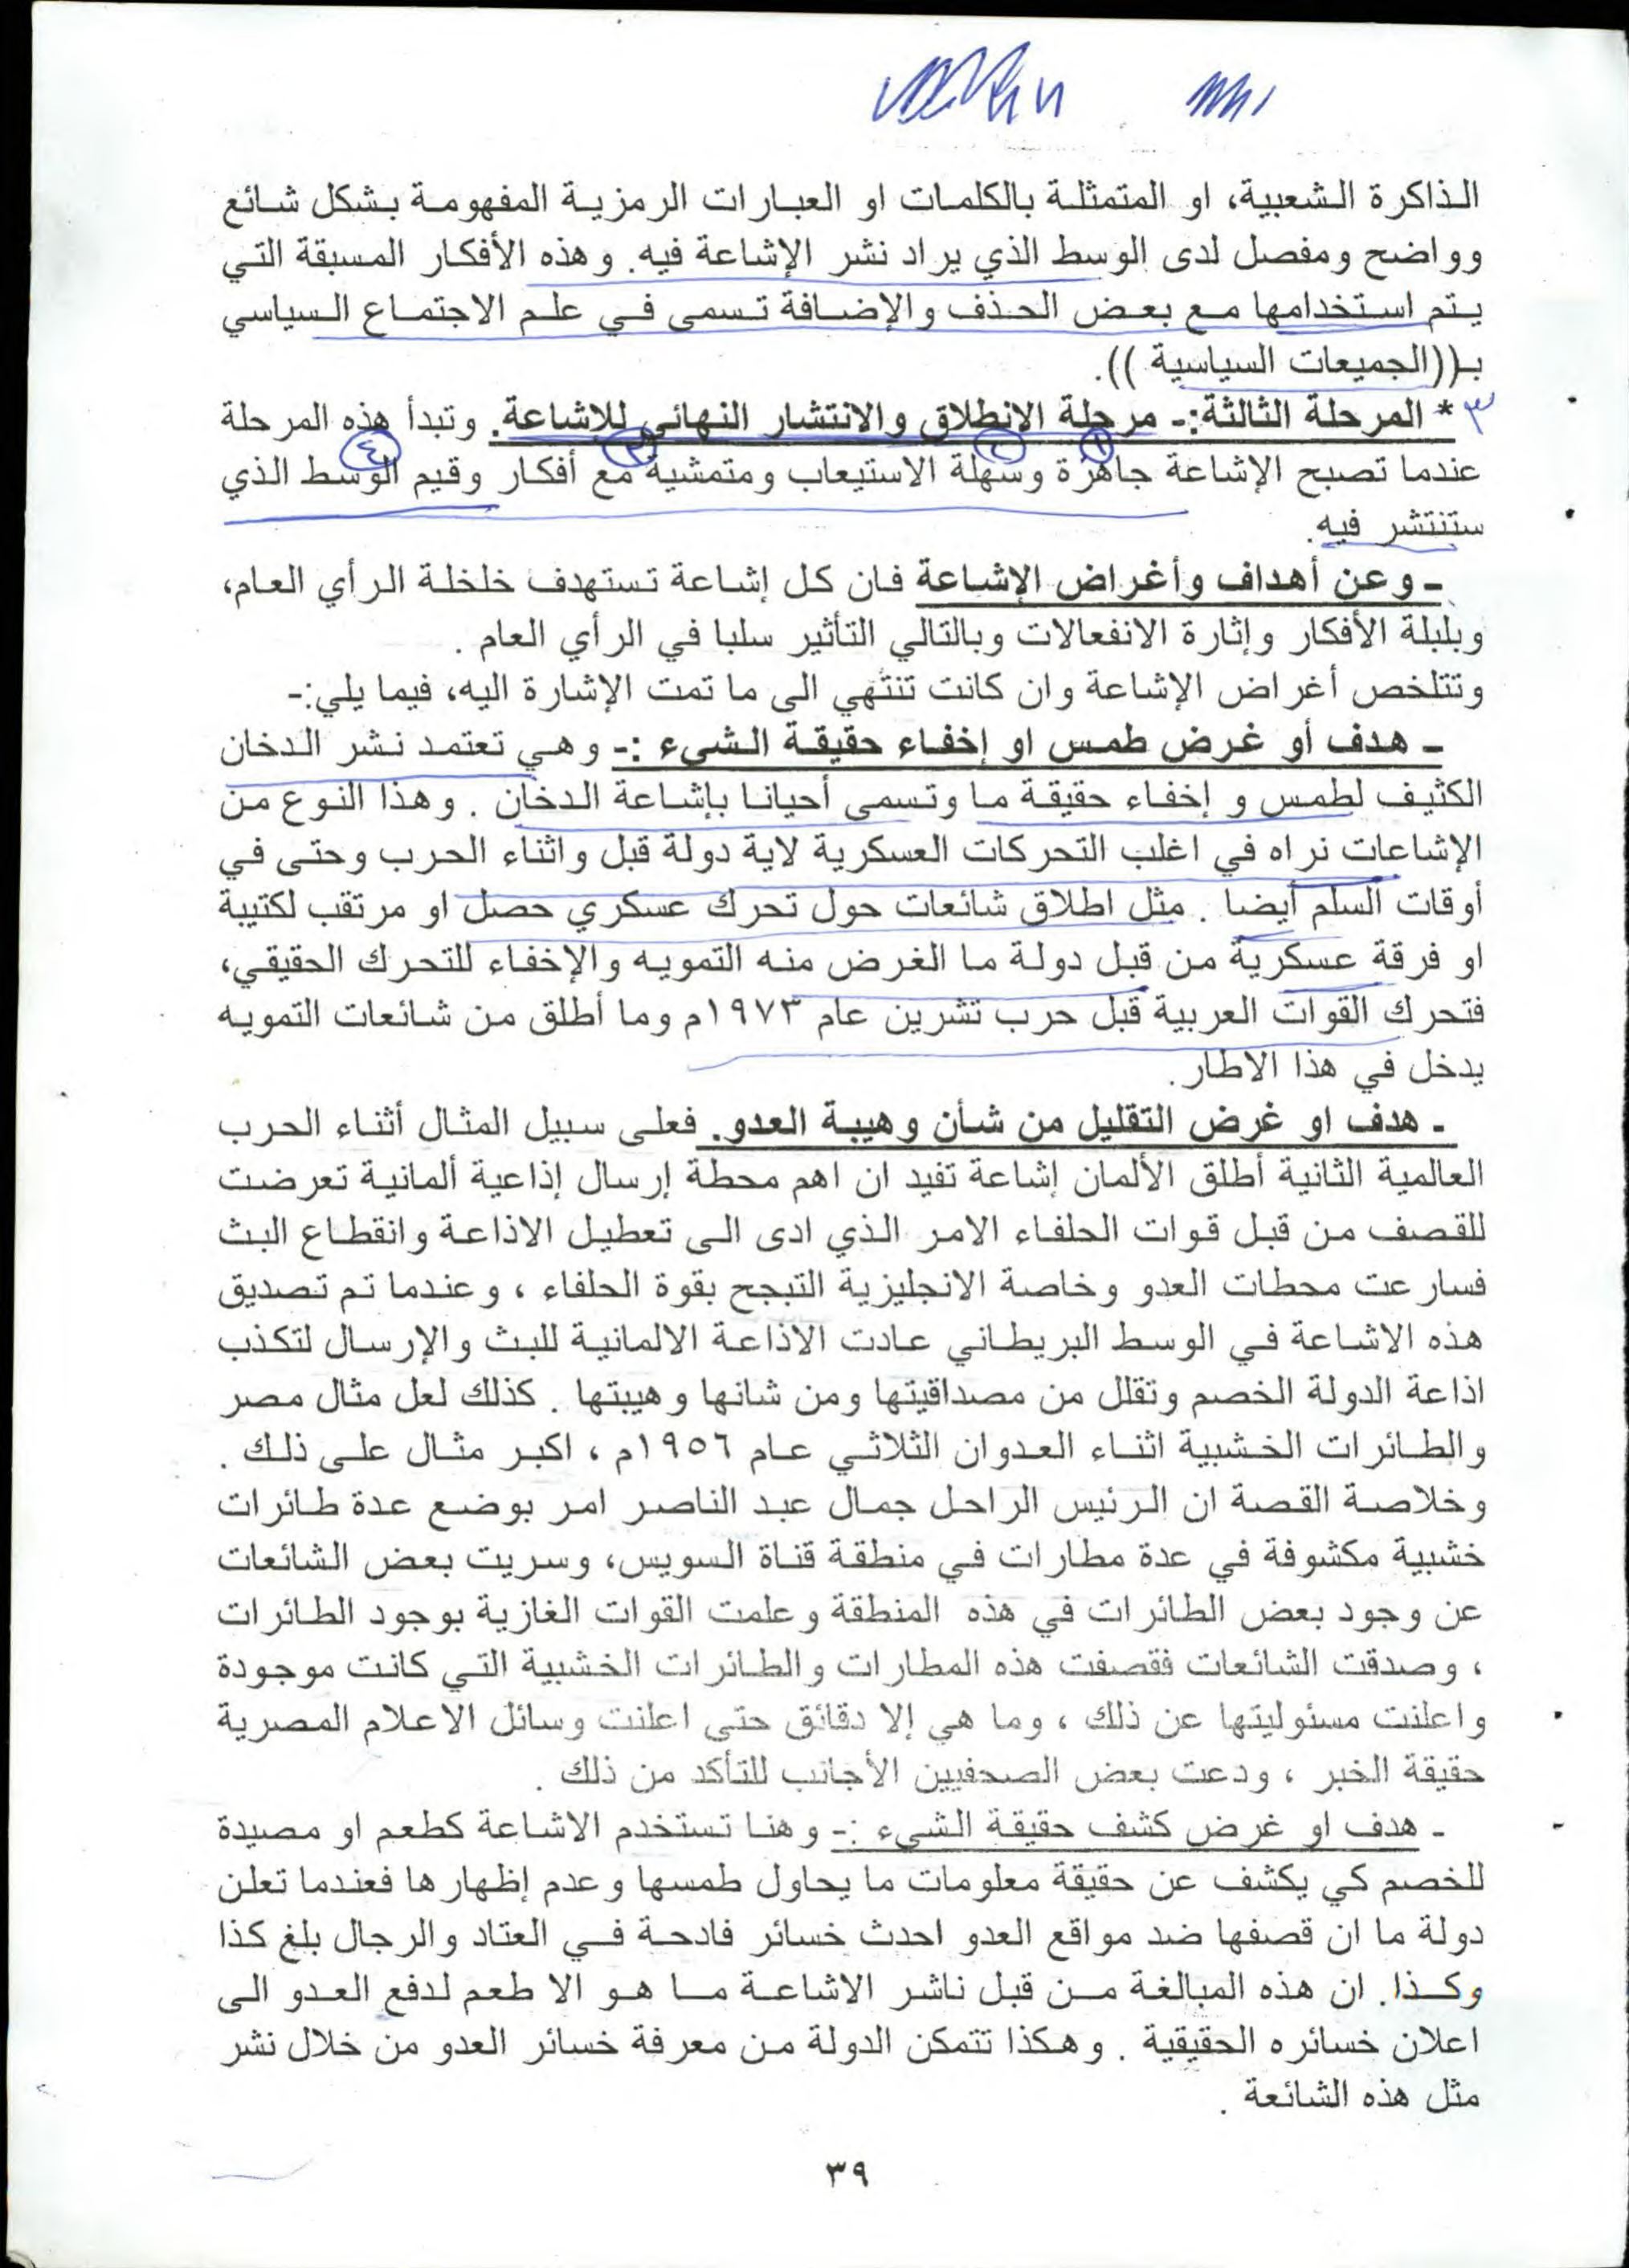 الذاكرة الشعبية، او المتمثلة بالكلمات او العبارات الرمزية المفهومة بشكل شائع
وواضح ومفصل لدى الوسط الذي يراد نشر الإشاعة فيه. وهذه الأفكار المسبقة التي
يتم استخدامها مع بعض الحذف والإضافة تسمى في علم الاجتماع السياسي
بـ((الجميعات السياسية )).
٣ * المرحلة الثالثة:- مرحلة الانطلاق والانتشار النهائي للإشاعة. وتبدأ هذه المرحلة
١ ٢ ٣ ٤
عندما تصبح الإشاعة جاهزة وسهلة الاستيعاب ومتمشية مع أفكار وقيم الوسط الذي
ستنتشر فيه.
- وعن أهداف وأغراض الإشاعة فان كل إشاعة تستهدف خلخلة الرأي العام،
وبلبلة الأفكار وإثارة الانفعالات وبالتالي التأثير سلبا في الرأي العام .
وتتلخص أغراض الإشاعة وان كانت تنتهي الى ما تمت الإشارة اليه، فيما يلي:-
- هدف أو غرض طمس او إخفاء حقيقة الشيء :- وهي تعتمد نشر الدخان
الكثيف لطمس و إخفاء حقيقة ما وتسمى أحيانا بإشاعة الدخان . وهذا النوع من
الإشاعات نراه في اغلب التحركات العسكرية لاية دولة قبل واثناء الحرب وحتى في
أوقات السلم أيضا . مثل اطلاق شائعات حول تحرك عسكري حصل او مرتقب لكتيبة
او فرقة عسكرية من قبل دولة ما الغرض منه التمويه والإخفاء للتحرك الحقيقي،
فتحرك القوات العربية قبل حرب تشرين عام ١٩٧٣م وما أطلق من شائعات التمويه
يدخل في هذا الاطار.
- هدف او غرض التقليل من شأن وهيبة العدو. فعلى سبيل المثال أثناء الحرب
العالمية الثانية أطلق الألمان إشاعة تفيد ان اهم محطة إرسال إذاعية ألمانية تعرضت
للقصف من قبل قوات الحلفاء الامر الذي ادى الى تعطيل الاذاعة وانقطاع البث
فسارعت محطات العدو وخاصة الانجليزية التبجح بقوة الحلفاء ، وعندما تم تصديق
هذه الاشاعة في الوسط البريطاني عادت الاذاعة الالمانية للبث والإرسال لتكذب
اذاعة الدولة الخصم وتقلل من مصداقيتها ومن شانها وهيبتها . كذلك لعل مثال مصر
والطائرات الخشبية اثناء العدوان الثلاثي عام ١٩٥٦م ، اكبر مثال على ذلك .
وخلاصة القصة ان الرئيس الراحل جمال عبد الناصر امر بوضع عدة طائرات
خشبية مكشوفة في عدة مطارات في منطقة قناة السويس، وسربت بعض الشائعات
عن وجود بعض الطائرات في هذه المنطقة وعلمت القوات الغازية بوجود الطائرات
، وصدقت الشائعات فقصفت هذه المطارات والطائرات الخشبية التي كانت موجودة
واعلنت مسئوليتها عن ذلك ، وما هي إلا دقائق حتى اعلنت وسائل الاعلام المصرية
حقيقة الخبر ، ودعت بعض الصحفيين الأجانب للتأكد من ذلك .
- هدف او غرض كشف حقيقة الشيء :- وهنا تستخدم الاشاعة كطعم او مصيدة
للخصم كي يكشف عن حقيقة معلومات ما يحاول طمسها وعدم إظهارها فعندما تعلن
دولة ما ان قصفها ضد مواقع العدو احدث خسائر فادحة في العتاد والرجال بلغ كذا
وكذا. ان هذه المبالغة من قبل ناشر الاشاعة ما هو الا طعم لدفع العدو الى
اعلان خسائره الحقيقية . وهكذا تتمكن الدولة من معرفة خسائر العدو من خلال نشر
مثل هذه الشائعة .
٣٩